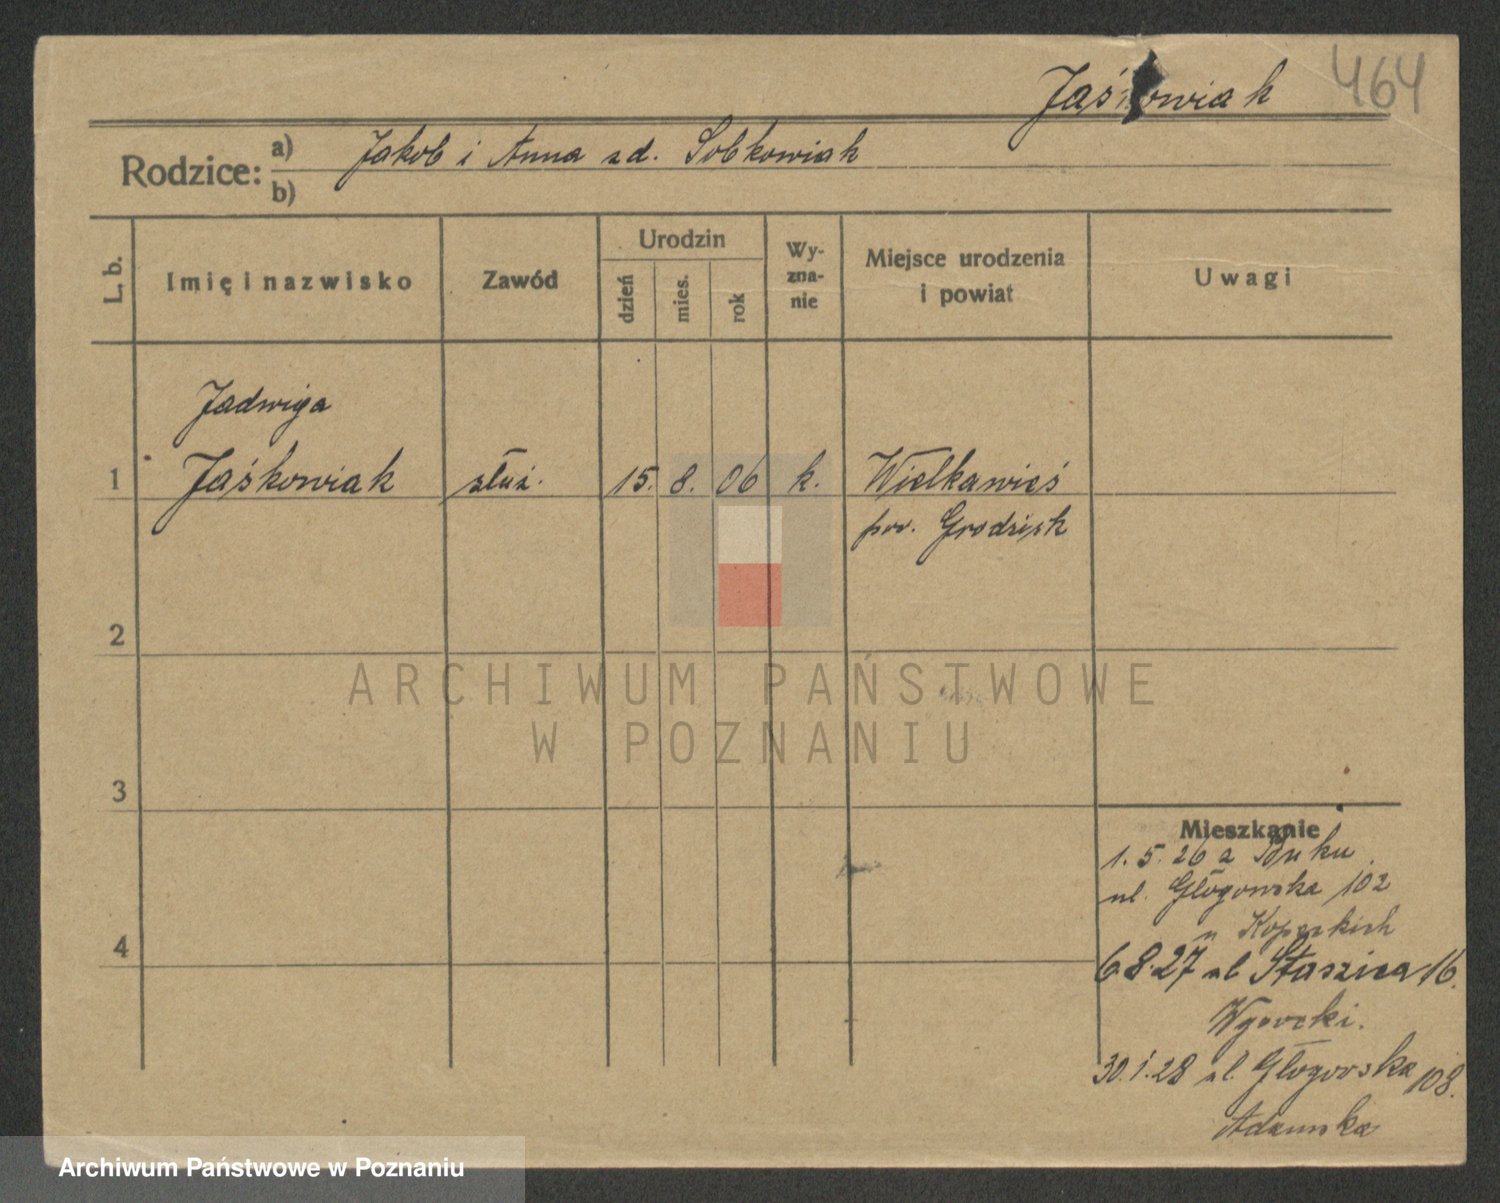 Jaśkowiak 464
Rodzice: a) Jakob i Anna zd. Sobkowiak
b)
L. b.
Imię i nazwisko
Zawód
Urodzin
dzień
mies.
rok
Wy-
zna-
nie
Miejsce urodzenia
i powiat
Uwagi
Jadwiga
1 Jaśkowiak służ. 15. 8. 06 k. Wielkawieś
pow. Grodzisk
2
3
4
ARCHIWUM PAŃSTWOWE
W POZNANIU
Mieszkanie
1.5.26 z Buku
ul. Głogowska 102
u
6.8.27 ul Staszica 16.
30.1.28 ul. Głogowska 108.
Adamska
Archiwum Państwowe w Poznaniu